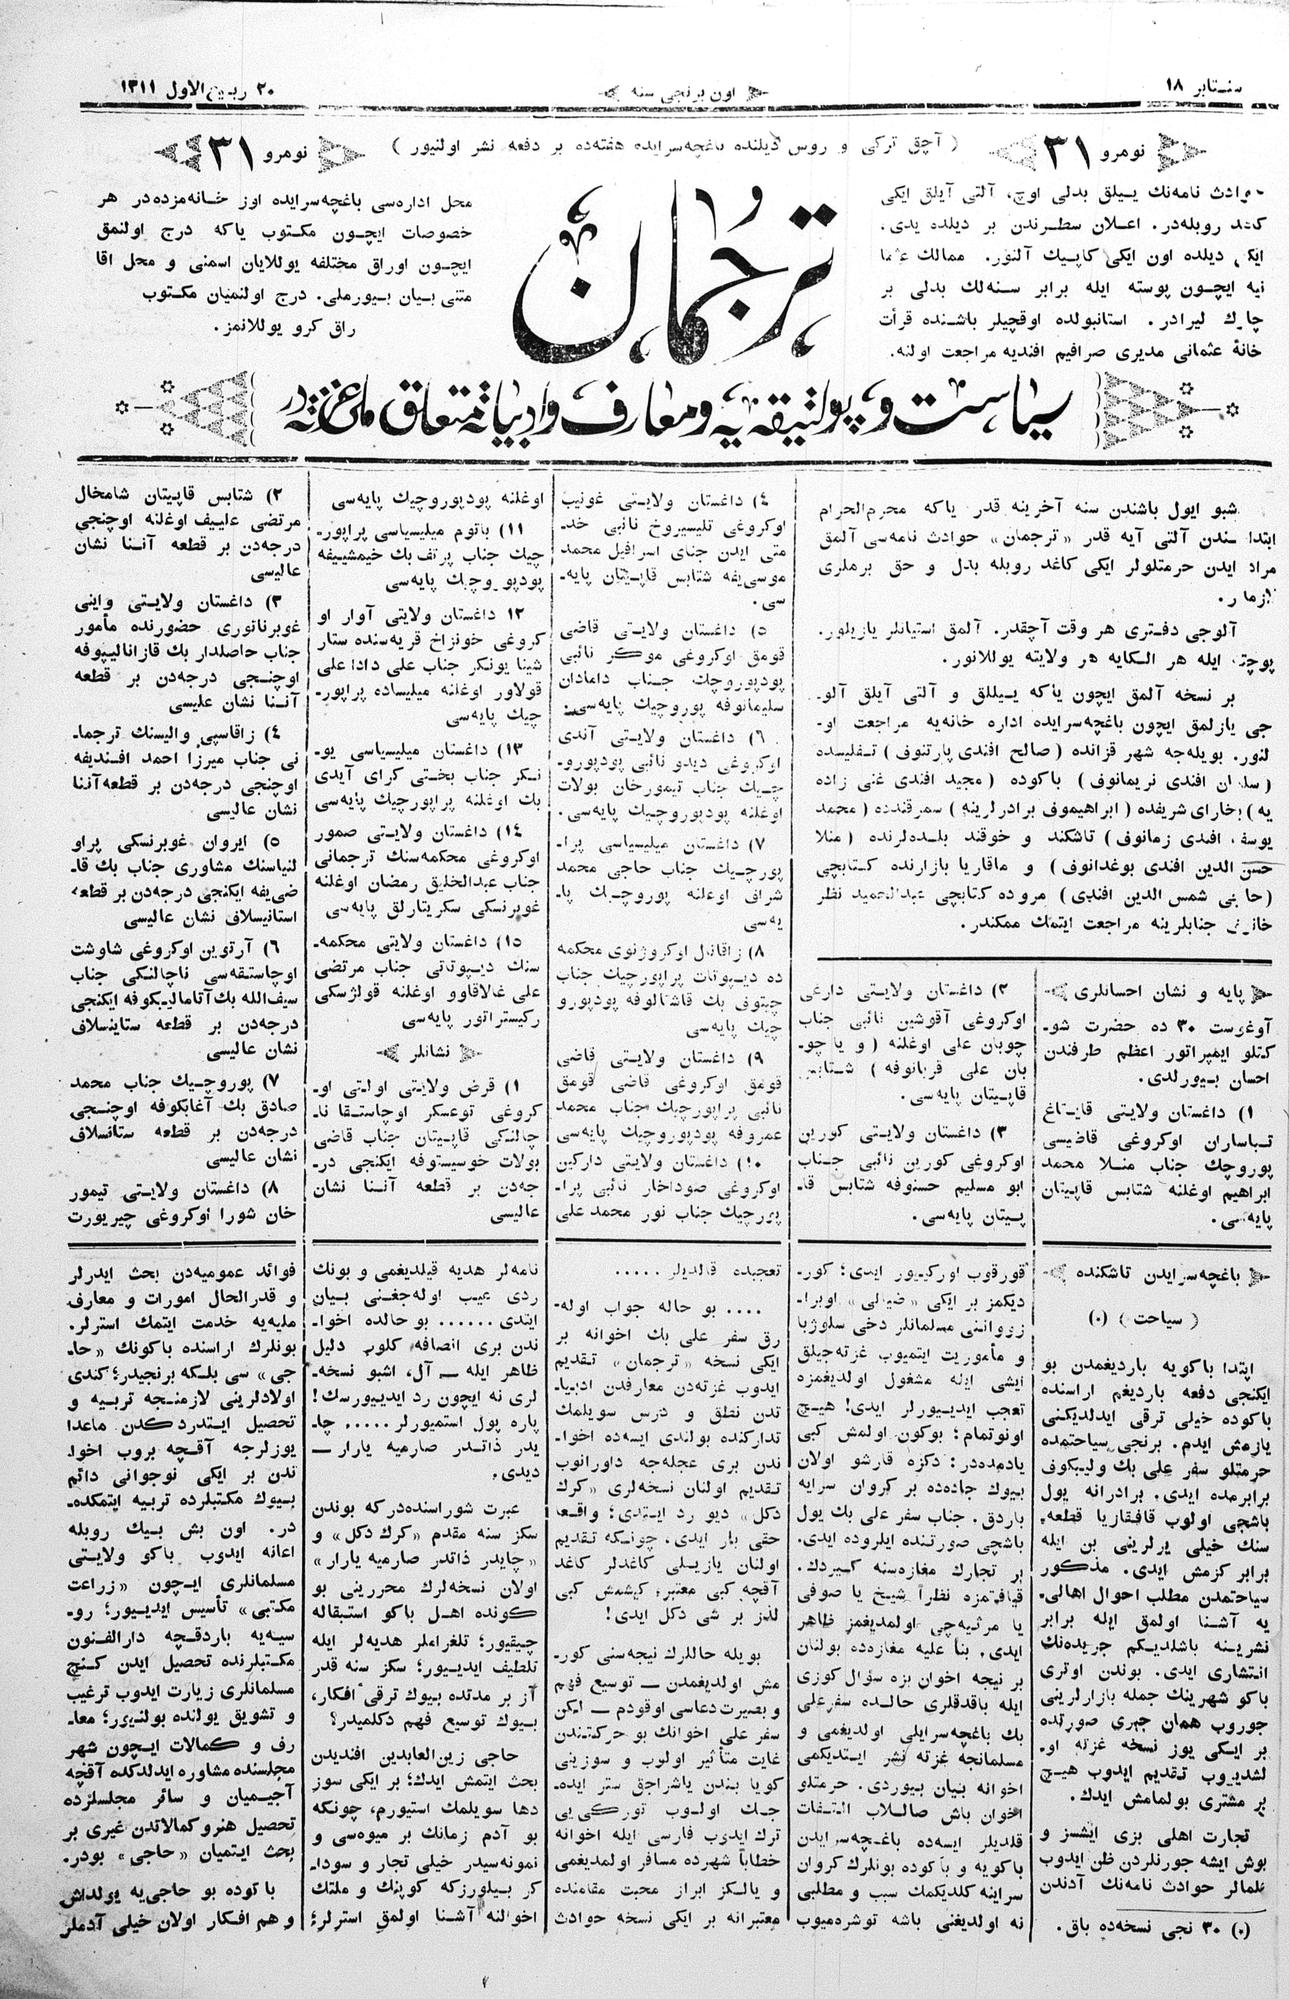 سنتابر ١٨
اون برنجی سنه
٢٠ ربیع الاول ١٣١١
نومرو ٣١
( آچق ترکی و روس دیلنده باغچه‌سرایده هفته‌ده بر دفعه نشر اولنیور )
نومرو ٣١
حوادث نامه‌نك ییلق بدلی اوچ، آلتی آیلق ایکی
کاغد روبله‌در. اعلان سطرندن بر دیلده یدی،
ایکی دیلده اون ایکی کاپیك آلنور. ممالك عثما
نیه ایچون پوسته ایله برابر سنه‌لك بدلی بر
چارك لیرادر. استانبولده اوقچیلر باشنده قرأت
خانهٔ عثمانی مدیری صرافیم افندیه مراجعت اولنه.
ترجمان
محل اداره‌سی باغچه‌سرایده اوز خانه‌مزده‌در هر
خصوصات ایچون مکتوب یاکه درج اولنمق
ایچون اوراق مختلفه یوللایان اسمنی و محل اقا
متنی بیان بیورملی. درج اولنمیان مکتوب
راق کرو یوللانمز.
سیاست و پولتیقه‌یه و معارف و ادبیاته متعلق ملی غزته‌در
شبو ایول باشندن سنه آخرینه قدر یاکه محرم‌الحرام
ابتدا سندن آلتی آیه قدر «ترجمان» حوادث نامه‌سی آلمق
مراد ایدن حرمتلولر ایکی کاغد روبله بدل و حق برملری
لازمدر.
آلوجی دفتری هر وقت آچقدر. آلمق استیانلر یازیلور.
پوچته ایله هر الکایه هر ولایته یوللانور.
بر نسخه آلمق ایچون یاکه ییللق و آلتی آیلق آلو-
جی یازلمق ایچون باغچه‌سرایده اداره خانه‌یه مراجعت او-
لنور. بویله‌جه شهر قزانده (صالح افندی پارتنوف) تفلیسده
(سلمان افندی نریمانوف) باکوده (مجید افندی غنی زاده
یه) بخارای شریفده (ابراهیموف برادرلرینه) سمرقندده (محمد
یوسف افندی زمانوف) تاشکند و خوقند بلده‌لرنده (منلا
حسن الدین افندی بوغدانوف) و ماقاریا بازارنده کتابچی
(حاجی شمس الدین افندی) مروده کتابچی عبدالحمید نظر
خانوف جنابلرینه مراجعت ایتمك ممکندر.
پایه و نشان احسانلری
آوغوست ٣٠ ده حضرت شو-
کتلو ایمپراتور اعظم طرفندن
احسان بیورلدی.
١) داغستان ولایتی قایتاغ
تباساران اوکروغی قاضیسی
پوروچك جناب منلا محمد
ابراهیم اوغلنه شتابس قاپیتان
پایه‌سی.
٢) داغستان ولایتی دارغی
اوکروغی آقوشین نائبی جناب
چوبان علی اوغلنه (و یا چو-
بان علی قربانوفه) شتابس
قاپیتان پایه‌سی.
٣) داغستان ولایتی کورین
اوکروغی کورین نائبی جناب
ابو مسلیم حسنوفه شتابس قا-
پیتان پایه‌سی.
٤) داغستان ولایتی غونیب
اوکروغی تلیسیروخ نائبی خد-
متی ایدن جنای اسرافیل محمد
موسی‌یفه شتابس قاپیتان پایه-
سی.
٥) داغستان ولایتی قاضی
قومق اوکروغی موکر نائبی
پودپوروچك جناب دامادان
سلیمانوفه پوروچیك پایه‌سی.
٦) داغستان ولایتی آندی
اوکروغی دیدو نائبی پودپورو-
چیك جناب تیمورخان بولات
اوغلنه پودپوروچیك پایه‌سی.
٧) داغستان میلیسیاسی پرا-
پورچیك جناب حاجی محمد
شراف اوغلنه پوروچیك پا-
یه‌سی
٨) زاقاتال اوکروژنوی محکمه
ده دیپوتات پراپورچیك جناب
چیتوف بك قاشتالوفه پودپورو
چیك پایه‌سی
٩) داغستان ولایتی قاضی
قومق اوکروغی قاضی قومق
نائبی پراپورچیك جناب محمد
عمروفه پودپوروچیك پایه‌سی
١٠) داغستان ولایتی دارکین
اوکروغی صوداخار نائبی پرا-
پورچیك جناب نور محمد علی
اوغلنه پودپوروچیك پایه‌سی
١١) باتوم میلیسیاسی پراپور-
چیك جناب پرتف بك خیمشییفه
پودپوروچیك پایه‌سی
١٢ داغستان ولایتی آوار او
کروغی خونزاخ قریه‌سنده ستار
شینا یونکر جناب علی دادا علی
قولاور اوغلنه میلیساده پراپور-
چیك پایه‌سی
١٣) داغستان میلیسیاسی یو-
نکر جناب بختی کرای آیدی
بك اوغلنه پراپورچیك پایه‌سی
١٤) داغستان ولایتی صمور
اوکروغی محکمه‌سنك ترجمانی
جناب عبدالخلیق رمضان اوغلنه
غوبرنسکی سکریتارلق پایه‌سی
١٥) داغستان ولایتی محکمه-
سنك دیپوتاتی جناب مرتضی
علی غالاقاوو اوغلنه قولژسکی
رکیستراتور پایه‌سی
نشانلر
١) قرض ولایتی اولتی او-
کروغی توعسکر اوچاستقا نا-
چالنکی قاپیتان جناب قاضی
بولات خوسیستوفه ایکنجی در-
جه‌دن بر قطعه آننا نشان
عالیسی
٢) شتابس قاپیتان شامخال
مرتضی علییف اوغلنه اوچنجی
درجه‌دن بر قطعه آننا نشان
عالیسی
٣) داغستان ولایتی واینی
غوبرناتوری حضورنده مأمور
جناب حاصلدار بك قازانالیپوفه
اوچنجی درجه‌دن بر قطعه
آننا نشان علیسی
٤) زاقاسپی والیسنك ترجما-
نی جناب میرزا احمد افندیفه
اوچنجی درجه‌دن بر قطعه‌آننا
نشان عالیسی
٥) ایروان غوبرنسکی پراو
لنیاسنك مشاوری جناب بك قا-
ضی‌یفه ایکنجی درجه‌دن بر قطعه
استانیسلاف نشان عالیسی
٦) آرتوین اوکروغی شاوشت
اوچاستیقه‌سی ناچالنکی جناب
سیف‌الله بك آتامالیبکوفه ایکنجی
درجه‌دن بر قطعه ستاینسلاف
نشان عالیسی
٧) پوروچیك جناب محمد
صادق بك آغابکوفه اوچنجی
درجه‌دن بر قطعه ستانسلاف
نشان عالیسی
٨) داغستان ولایتی تیمور
خان شورا اوکروغی چیریورت
باغچه‌سرایدن تاشکنده
(سیاحت) (٠)
ابتدا باکویه باردیغمدن بو
ایکنجی دفعه باردیغم اراسنده
باکوده خیلی ترقی ایدلدیکنی
یازمش ایدم. برنجی سیاحتمده
حرمتلو سفر علی بك ولیبکوف
برابرمده ایدی. برادرانه یول
باشچی اولوب قافقازیا قطعه-
سنك خیلی یرلرینی بن ایله
برابر کزمش ایدی. مذکور
سیاحتمدن مطلب احوال اهالی-
یه آشنا اولمق ایله برابر
نشرینه باشلدیکم جریده‌نك
انتشاری ایدی. بوندن اوتری
باکو شهرینك جمله بازارلرینی
جوروب همان جبری صورتده
بر ایکی یوز نسخه غزته او-
لشدیروب تقدیم ایدوب هیچ
بر مشتری بولمامش ایدك.
تجارت اهلی بزی ایشسز و
بوش ایشه جورنلردن ظن ایدوب
علمالر حوادث نامه‌نك آدندن
(٠) ٣٠ نجی نسخه‌ده باق.
قورقوب اورکییور ایدی؛ کور-
دیکمز بر ایکی «ضیالی» اوبرا-
زووانی مسلمانلر دخی سلوژبا
و مأموریت ایتمیوب غزته‌جیلق
ایشی ایله مشغول اولدیغمزه
تعجب ایدییورلر ایدی! هیچ
اونوتمام؛ بوکون اولمش کبی
یادمده‌در: دکزه قارشو اولان
بیوك جاده‌ده بر کروان سرایه
باردق. جناب سفر علی بك یول
باشچی صورتنده ایلروده ایدی.
بر تجارك مغازه‌سنه کیردك.
قیافتمزه نظراً شیخ یا صوفی
یا مرثیه‌چی اولمدیغمز ظاهر
ایدی. بناً علیه مغازه‌ده بولنان
بر نیجه اخوان بزه سؤال کوزی
ایله باقدقلری حالده سفرعلی
بك باغچه‌سرایلی اولدیغمی و
مسلمانجه غزته نشر ایتدیکمی
اخوانه بیان بیوردی. حرمتلو
اخوان باش صاللاب التفات
قلدیلر ایسه‌ده باغچه‌سرایدن
باکویه و باکوده بونلرك کروان
سراینه کلدیکمك سبب و مطلبی
نه اولدیغنی باشه توشره‌میوب
تعجبده قالدیلر .....
.... بو حاله جواب اوله-
رق سفر علی بك اخوانه بر
ایکی نسخه «ترجمان» تقدیم
ایدوب غزته‌دن معارفدن ادبیا-
تدن نطق و درس سویلمك
تدارکنده بولندی ایسه‌ده اخوا-
ندن بری عجله‌جه داورانوب
تقدیم اولنان نسخه‌لری «کرك
دکل» دیو رد ایتدی؛ واقعا
حقی بار ایدی. چونکه تقدیم
اولنان یازیلی کاغدلر کاغد
آقچه کبی معتبر؛ کیشمش کبی
لذذ بر شی دکل ایدی!
بویله حاللرك نیجه‌سنی کور-
مش اولدیغمدن — توسیع فهم
و بصیرت دعاسی اوقودم — لکن
سفر علی اخوانك بو حرکتندن
غایت متأثیر اولوب و سوزینی
کویا بندن یاشراجق ستر ایده-
جك اولوب تورکی‌یی
ترك ایدوب فارسی ایله اخوانه
خطاباً شهرده مسافر اولمدیغمی
و یالکز ابراز محبت مقامنده
معتبرانه بر ایکی نسخه حوادث
نامه‌لر هدیه قیلدیغمی و بونك
ردی عیب اوله‌جغنی بیان
ایتدی ...... بو حالده اخوا-
ندن بری انصافه کلوب دلیل
ظاهر ایله — آل، اشبو نسخه-
لری نه ایچون رد ایدییورسك!
پاره پول استمیورلر ..... چا-
یدر ذاتدر صارمیه یارار —
دیدی.
عبرت شوراسنده‌درکه بوندن
سکز سنه مقدم «کرك دکل» و
«چایدر ذاتدر صارمیه یارار»
اولان نسخه‌لرك محررینی بو
کونده اهل باکو استقباله
چیقیور؛ تلغراملر هدیه‌لر ایله
تلطیف ایدییور؛ سکز سنه قدر
آز بر مدتده بیوك ترقیٔ افکار،
بیوك توسیع فهم دکلمیدر؟
حاجی زین‌العابدین افندیدن
بحث ایتمش ایدك؛ بر ایکی سوز
دها سویلمك استیورم، چونکه
بو آدم زمانك بر میوه‌سی و
نمونه‌سیدر خیلی تجار و سودا-
کر بیلورزکه کوینك و ملتك
احوالنه آشنا اولمق استرلر؛
فوائد عمومیه‌دن بحث ایدرلر
و قدرالحال امورات و معارف
ملیه‌یه خدمت ایتمك استرلر.
بونلرك اراسنده باکونك «حا-
جی» سی بلکه برنجیدر؛ کندی
اولادلرینی لازمنجه تربیه و
تحصیل ایتدردکدن ماعدا
یوزلرجه آقچه بروب اخوا-
ندن بر ایکی نوجوانی دائم
بیوك مکتبلرده تربیه ایتمکده-
در. اون بش بیك روبله
اعانه ایدوب باکو ولایتی
مسلمانلری ایچون «زراعت
مکتبی» تأسیس ایدییور؛ رو-
سیه‌یه باردقچه دارالفنون
مکتبلرنده تحصیل ایدن کنچ
مسلمانلری زیارت ایدوب ترغیب
و تشویق یولنده بولنیور؛ معا-
رف و کمالات ایچون شهر
مجلسنده مشاوره ایدلدکده آقچه
آجیمیان و سائر مجلسلرده
تحصیل هنر و کمالاتدن غیری بر
بحث ایتمیان «حاجی» بودر.
باکوده بو حاجی‌یه یولداش
و هم افکار اولان خیلی آدملر